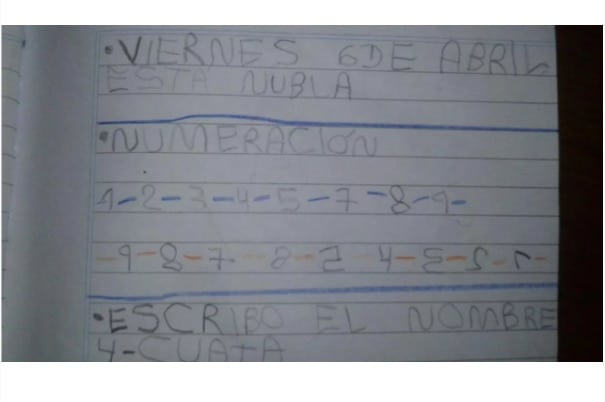 •VIERNES 6 DE ABRIL
ESTA NUBLA
•NUMERACIÓN
1-2-3-4-5-7-8-9-
-9-8-7-6-5 4-3-2-1-
•ESCRIBO EL NOMBRE
4-CUATA